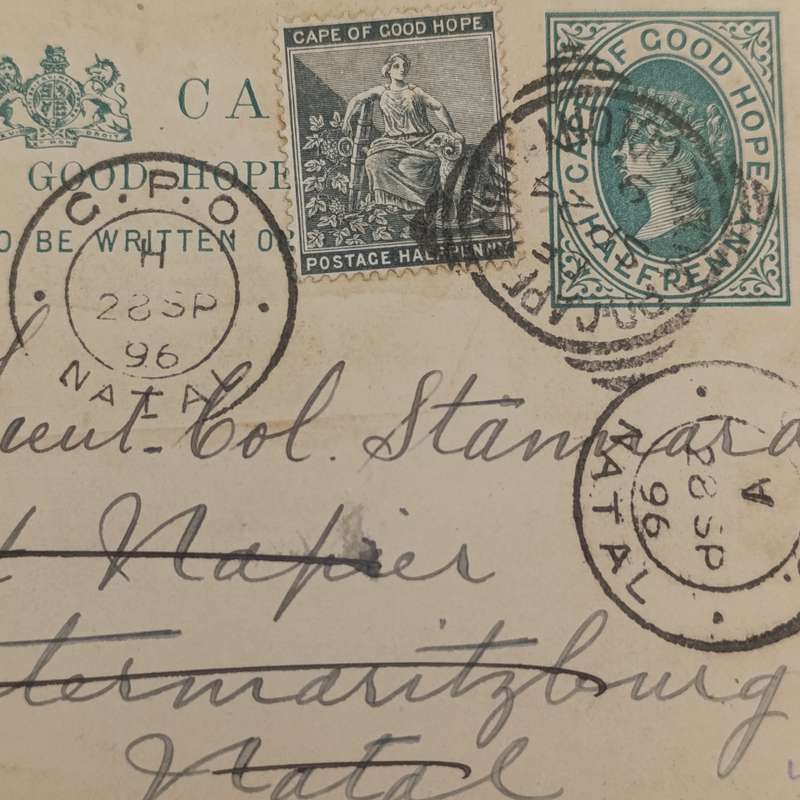 CAPE OF GOOD HOPE
POSTAGE HALFPENNY
CAPE OF GOOD HOPE
HALFPENNY
CA
GOOD HOPE
O BE WRITTEN O
G.P.O
H
28 SP
96
NATAL
Lieut-Col. Stannard
Napier
A
28 SP
96
NATAL
termaritzburg
Natal